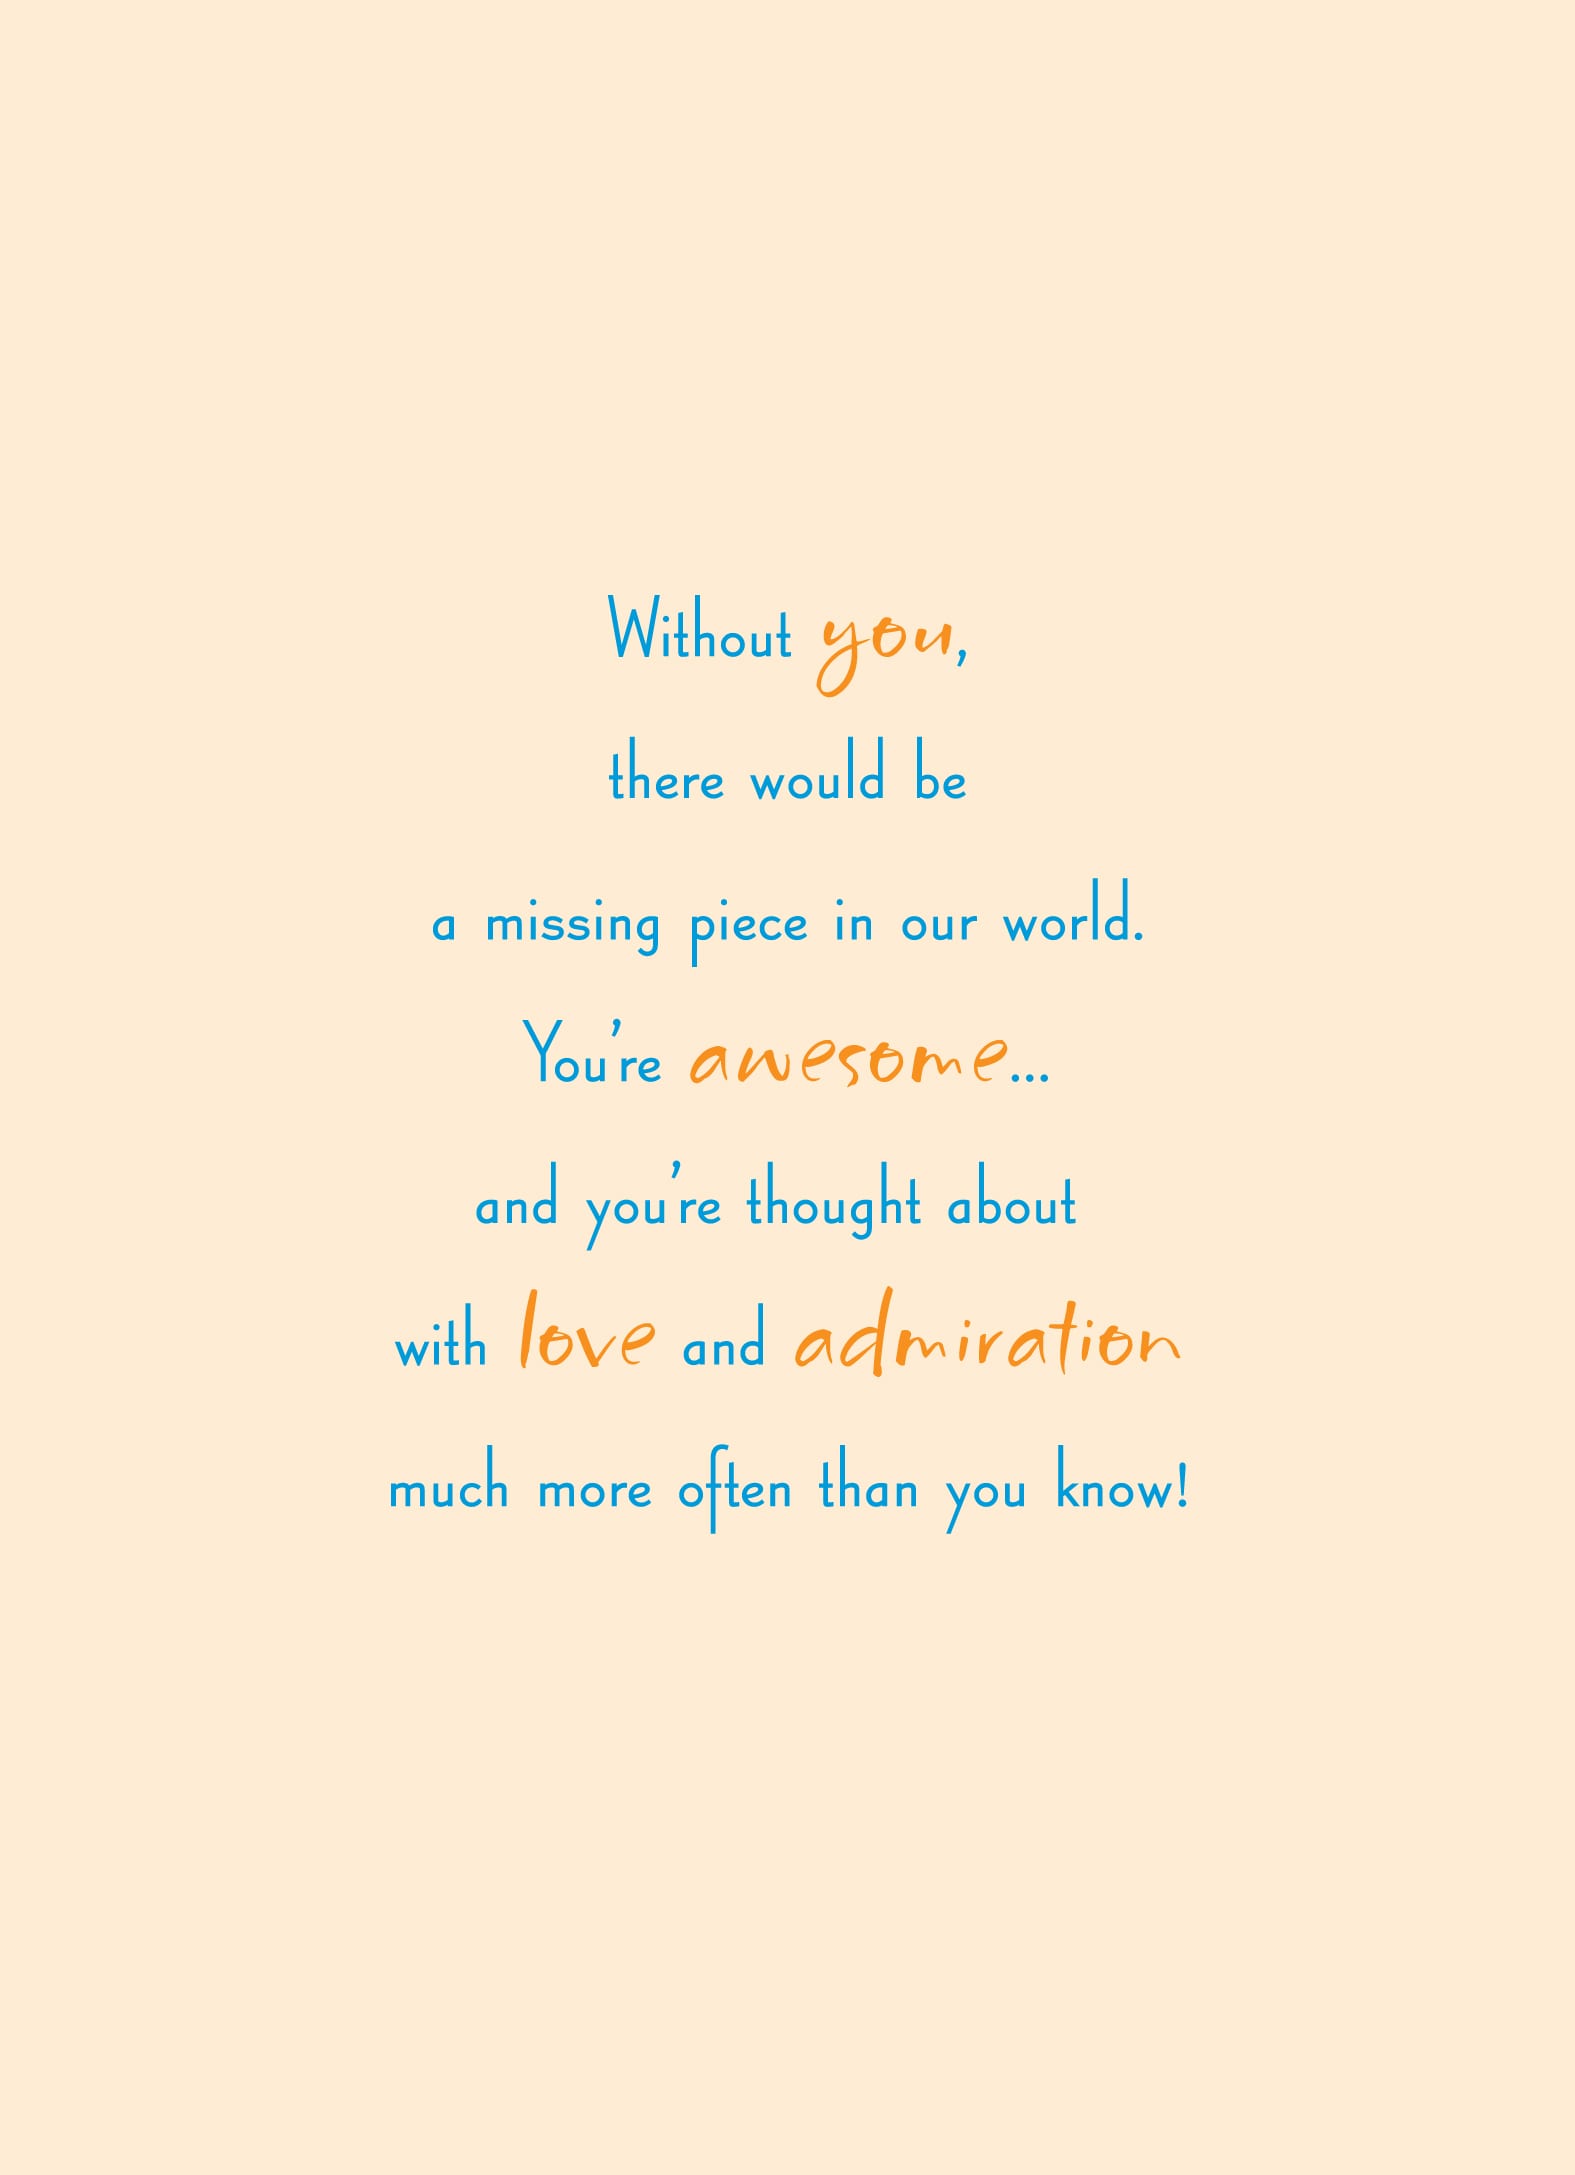 Without you,
there would be
a missing piece in our world.
You’re awesome...
and you’re thought about
with love and admiration
much more often than you know!